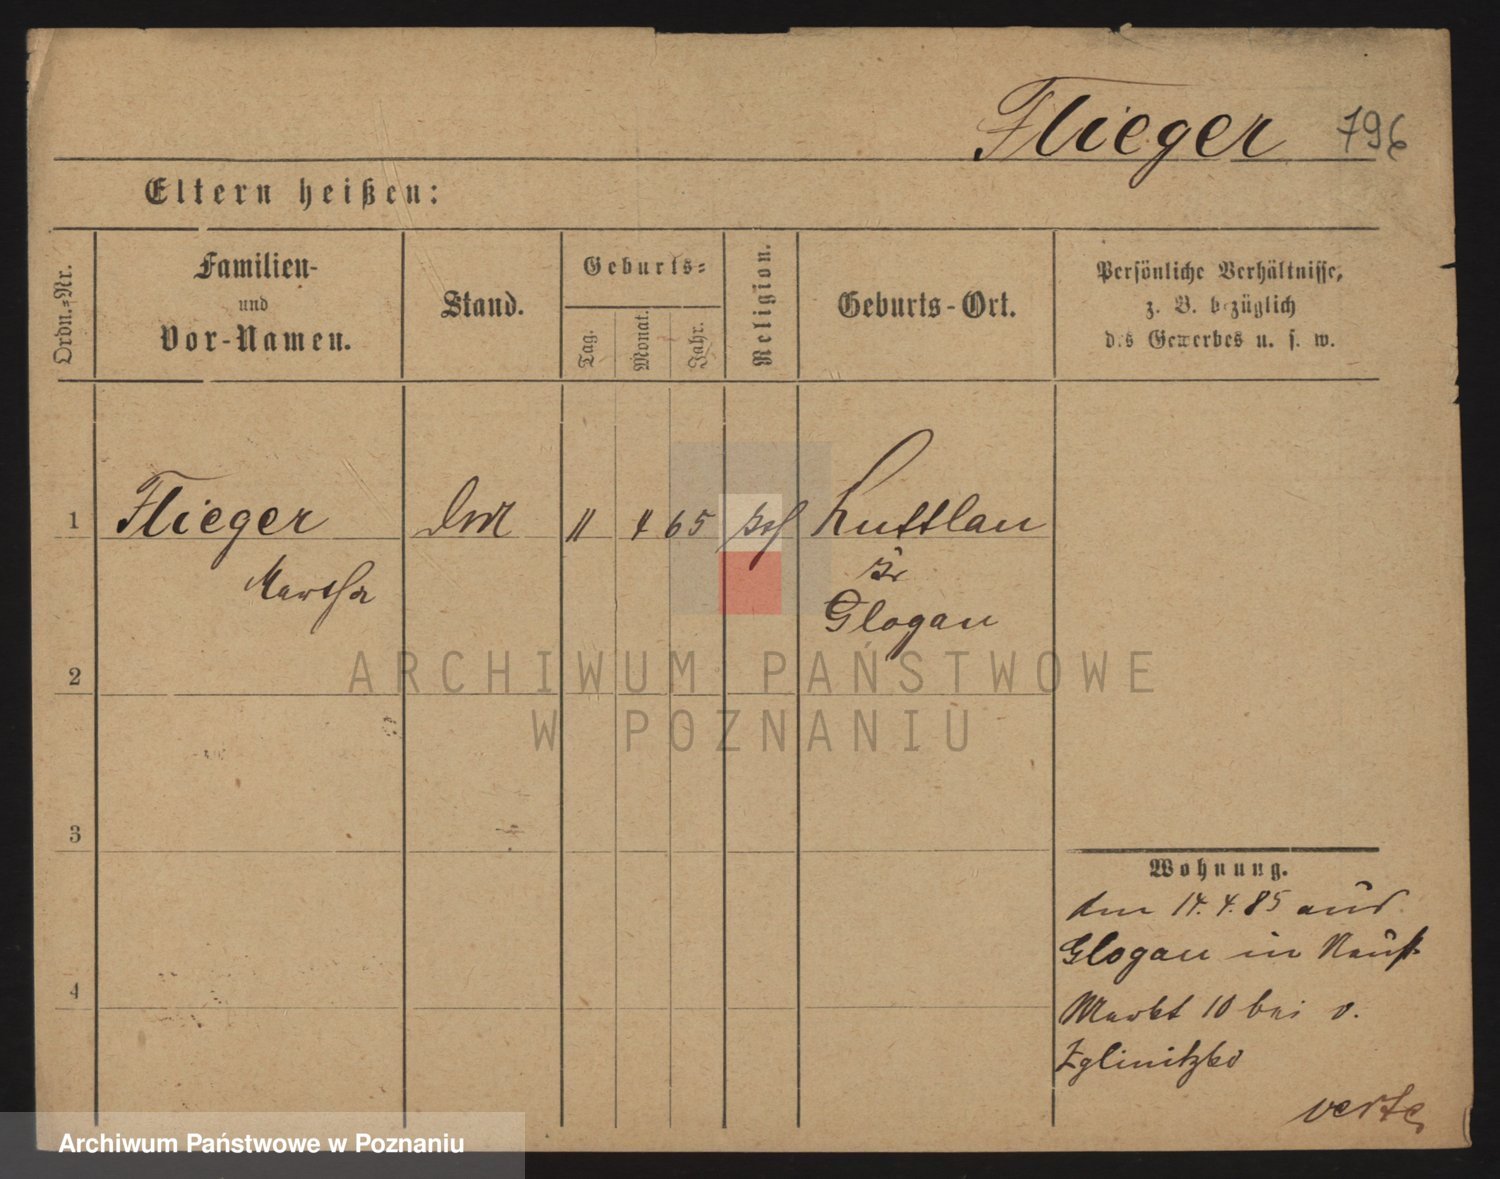 Flieger 796
Eltern heißen:
Ordn.-Nr.
Familien-
und
Vor-Namen.
Stand.
Geburts-
Tag.
Monat.
Jahr.
Religion.
Geburts-Ort.
Persönliche Verhältnisse,
z. B. bezüglich
des Gewerbes u. s. w.
1 Flieger 11 4 65
Martha
Glogau
2
3
4
Wohnung.
den 14. 4. 85 aus
Glogau in
Markt 10 bei v.
Zglinitzki
verte
ARCHIWUM PAŃSTWOWE
W POZNANIU
Archiwum Państwowe w Poznaniu